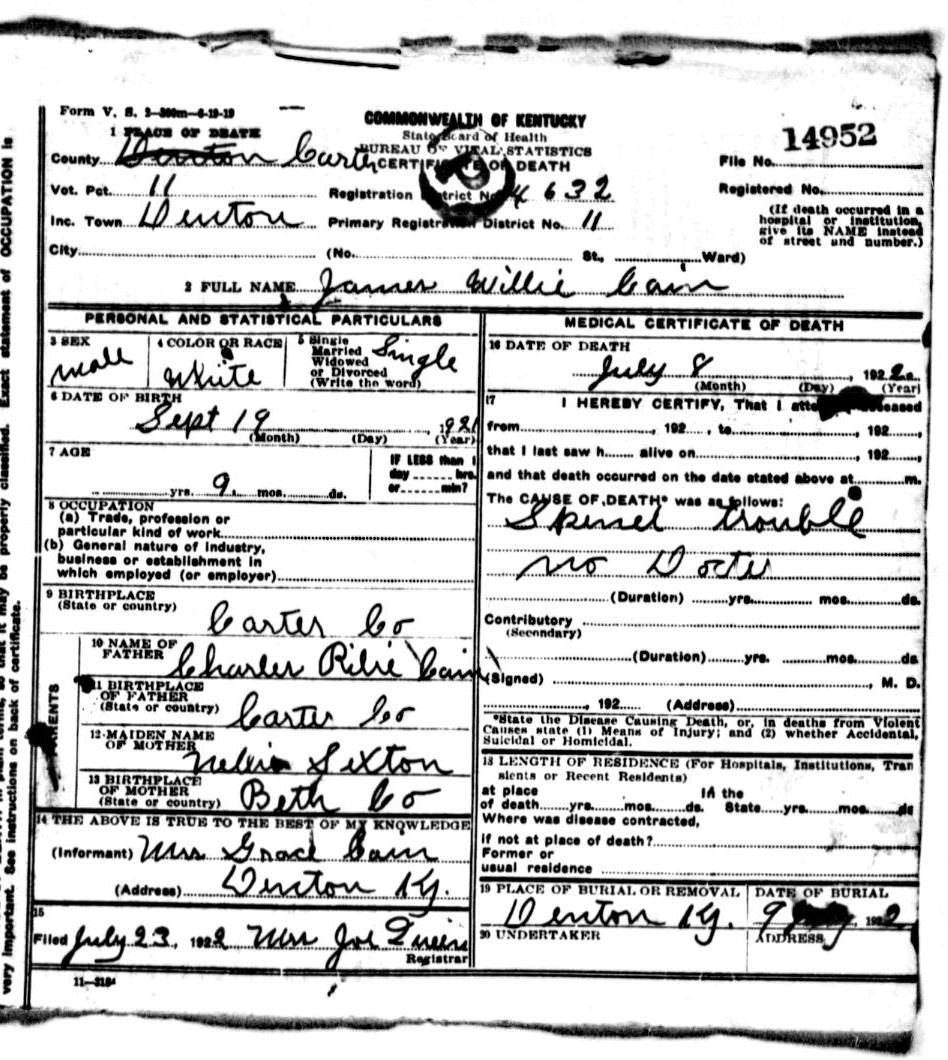 Form V. S. 2-300m-6-19-19
COMMONWEALTH OF KENTUCKY
State Board of Health
BUREAU OF VITAL STATISTICS
CERTIFICATE OF DEATH
14952
File No.
Registered No.
(If death occurred in a
hospital or institution,
give its NAME instead
of street and number.)
1 PLACE OF DEATH
County Denton Carter
Vot. Pct. 11
Registration District No. 632
Inc. Town Denton
Primary Registration District No. 11
City (No. St., Ward)
2 FULL NAME James Willie Cain
PERSONAL AND STATISTICAL PARTICULARS
3 SEX
male
4 COLOR OR RACE
White
5 Single
Married
Widowed
or Divorced
(Write the word)
Single
6 DATE OF BIRTH
Sept 19, 1921
(Month) (Day) (Year)
7 AGE
yrs. 9 mos. ds.
IF LESS than 1
day hrs.
or min?
8 OCCUPATION
(a) Trade, profession or
particular kind of work
(b) General nature of industry,
business or establishment in
which employed (or employer)
9 BIRTHPLACE
(State or country)
Carter Co
PARENTS
10 NAME OF
FATHER
Charles Rilie Cain
11 BIRTHPLACE
OF FATHER
(State or country)
Carter Co
12 MAIDEN NAME
OF MOTHER
Sexton
13 BIRTHPLACE
OF MOTHER
(State or country)
Beth Co
14 THE ABOVE IS TRUE TO THE BEST OF MY KNOWLEDGE
(Informant) Mrs Grace Cain
(Address) Denton Ky.
15
Filed July 23, 1922 Mrs Joe
Registrar
11-3184
MEDICAL CERTIFICATE OF DEATH
16 DATE OF DEATH
July 8, 1922
(Month) (Day) (Year)
17
I HEREBY CERTIFY, That I deceased
from , 192 , to , 192
that I last saw h alive on , 192
and that death occurred on the date stated above at m.
The CAUSE OF DEATH* was as follows:
trouble
no Docter
(Duration) yrs. mos. ds.
Contributory
(Secondary)
(Duration) yrs. mos. ds
(Signed) , M. D.
, 192 (Address)
*State the Disease Causing Death, or, in deaths from Violent
Causes state (1) Means of Injury; and (2) whether Accidental,
Suicidal or Homicidal.
18 LENGTH OF RESIDENCE (For Hospitals, Institutions, Tran
sients or Recent Residents)
at place In the
of death yrs. mos. ds. State yrs. mos. ds
Where was disease contracted,
if not at place of death?
Former or
usual residence
19 PLACE OF BURIAL OR REMOVAL
Denton Ky.
DATE OF BURIAL
9 1922
20 UNDERTAKER
ADDRESS
very important. See instructions on back of certificate.
so that it may be properly classified. Exact statement of OCCUPATION is